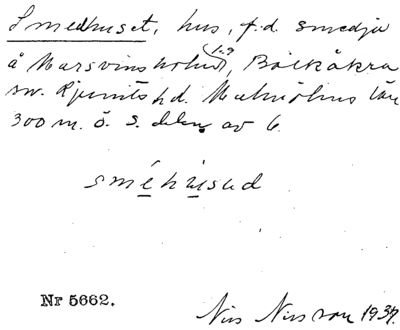 Smedhuset, hus, f.d. smedja
å Marsvinsholm 1:9, Balkåkra
sn. Ljunits hd. Malmöhus län
300 m. ö. s. delen av 6.
sméhused
Nr 5662.
Nils Nilsson 1937.